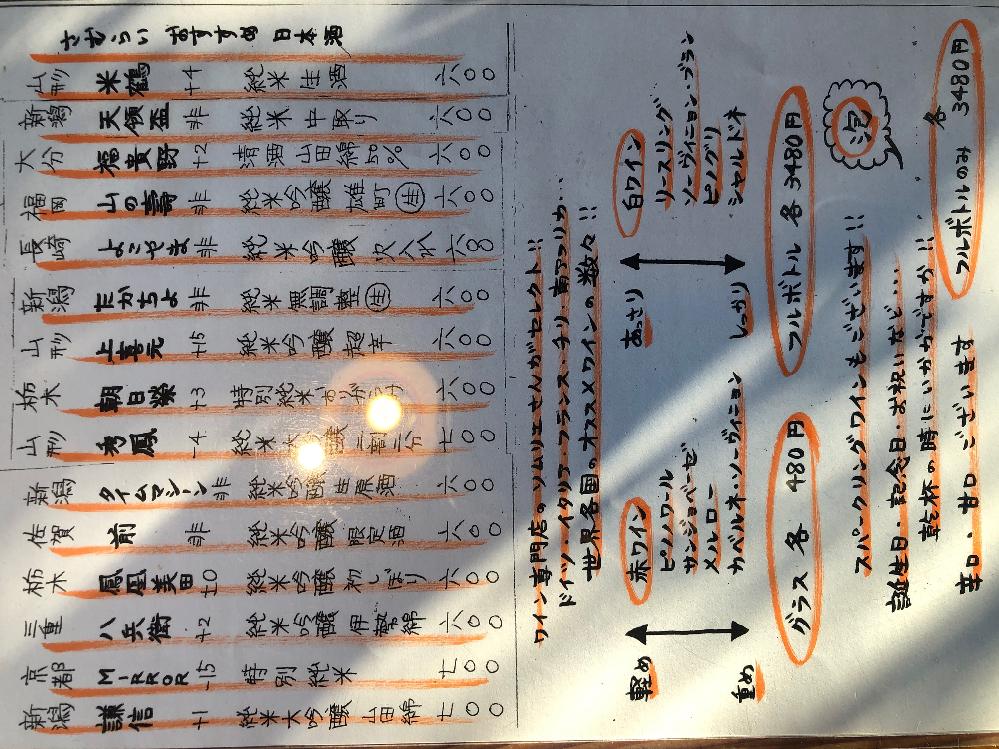 さむらい おすすめ 日本酒
山形 米鶴 +4 純米生酒 六〇〇
新潟 天領盃 非 純米中取り 六〇〇
大分 福貴野 +2 清酒 山田錦50% 六〇〇
福岡 山の壽 非 純米吟醸 雄町 生 六〇〇
長崎 よこやま 非 純米吟醸 火入れ 六〇〇
新潟 たかちよ 非 純米無調整 生 六〇〇
山形 上喜元 +15 純米吟醸 超辛 六〇〇
栃木 朝日榮 +3 特別純米おりがらみ 六〇〇
山形 秀鳳 -4 純米大吟醸 二割二分 七〇〇
新潟 タイムマシーン 非 純米吟醸生原酒 六〇〇
佐賀 前 非 純米吟醸 限定酒 六〇〇
栃木 鳳凰美田 ±0 純米吟醸 初しぼり 六〇〇
三重 八兵衛 +2 純米吟醸 伊勢錦 六〇〇
京都 MIRROR -15 特別純米 七〇〇
新潟 謙信 +1 純米大吟醸 山田錦 七〇〇
ワイン専門店のソムリエさんがセレクト!!
ドイツ・イタリア・フランス・チリ・南アフリカ…
世界各国のオススメワインの数々!!
赤ワイン
軽め
ピノノワール
サンジョベーゼ
メルロー
カベルネ・ソーヴィニョン
重め
白ワイン
あっさり
リースリング
ソーヴィニョン・ブラン
ピノグリ
シャルドネ
しっかり
グラス 各 480円
フルボトル 各 3480円
泡
スパークリングワインもございます!!
誕生日・記念日・お祝いなど…
乾杯の時にいかがですか!!
辛口・甘口 ございます
フルボトルのみ 各 3480円